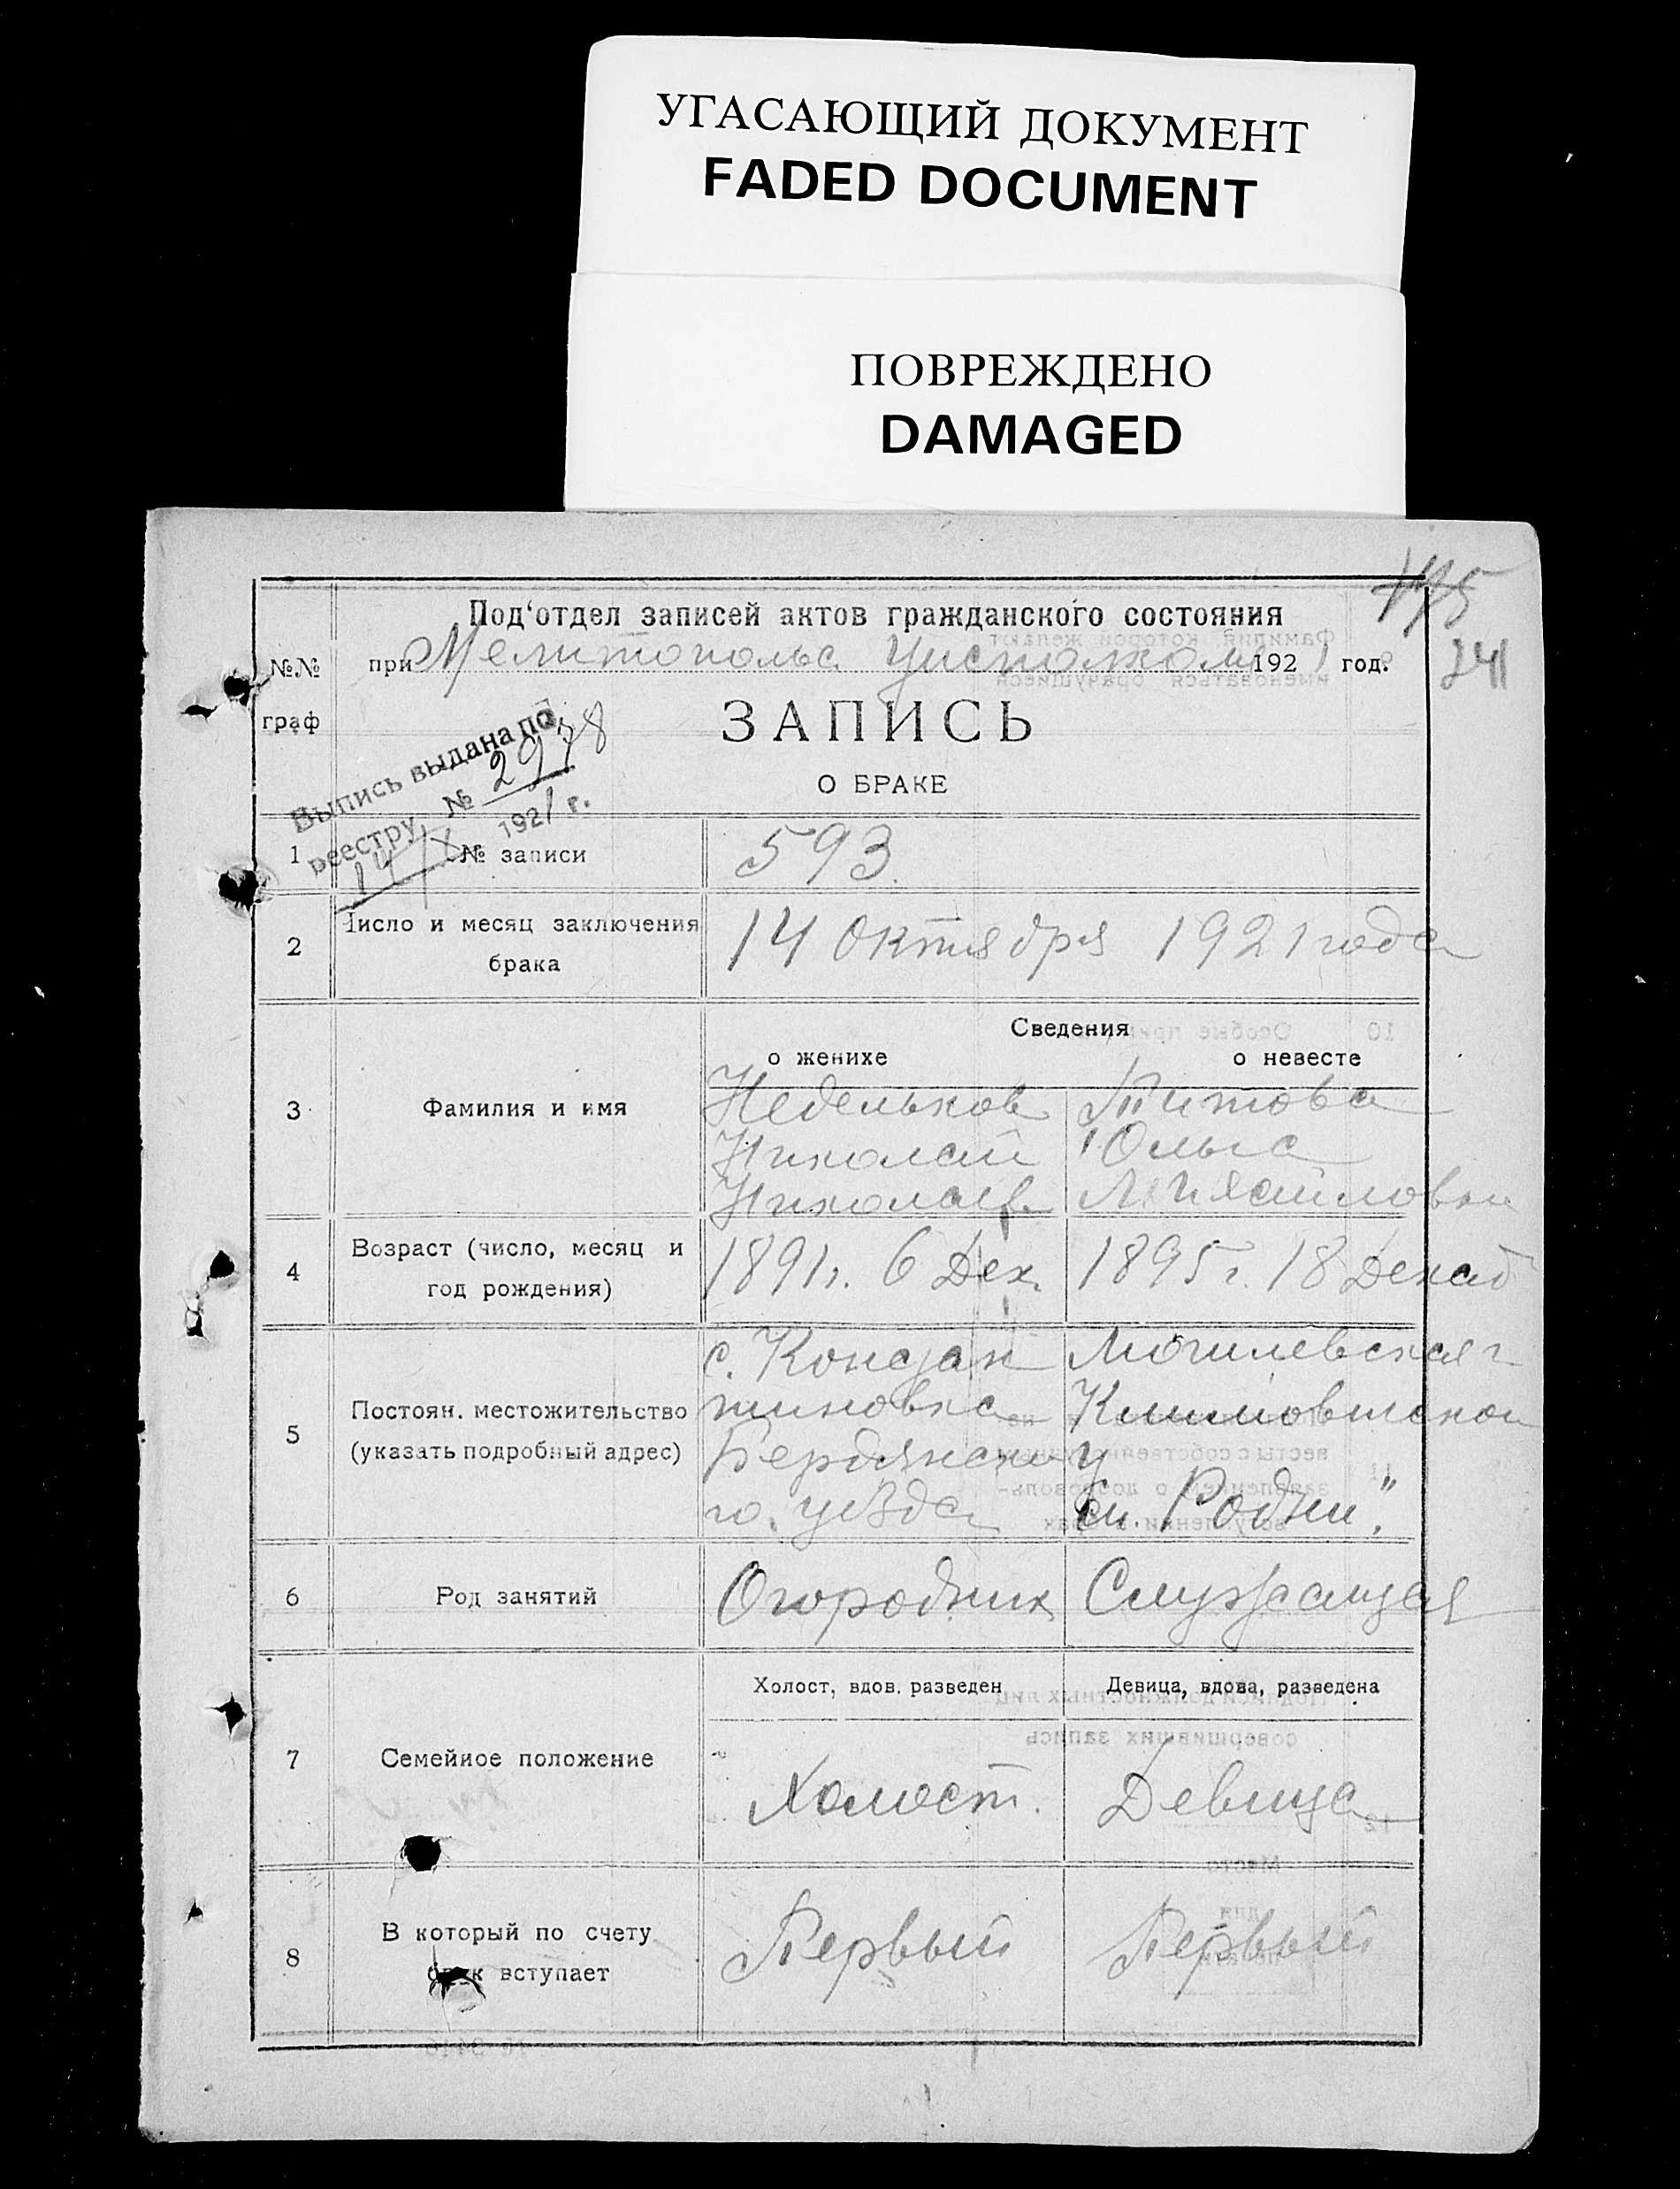 УГАСАЮЩИЙ ДОКУМЕНТ
FADED DOCUMENT
ПОВРЕЖДЕНО
DAMAGED
175
241
Под‘отдел записей актов гражданского состояния
№№ граф
при Мелитопольс. Уисполком 1921 год.
ЗАПИСЬ
О БРАКЕ
Выпись выдана по
реестру № 2978
14/X 1921 г.
1 № записи 593.
2 Число и месяц заключения брака 14 Октября 1921 года
Сведения
о женихе о невесте
3 Фамилия и имя
Недельков Титова
Николай Юлиа
Николаев Михайловна
4 Возраст (число, месяц и год рождения) 1891г. 6 Дек. 1895 г. 18 Декаб
5 Постоян. местожительство (указать подробный адрес)
с. Констан Могилевская г
тиновка Климовшской
Бердянско у
го. уезда см. Родни"
6 Род занятий Огородник Служащая
Холост, вдов. разведен Девица, вдова, разведена
7 Семейное положение Холост. Девица
8 В который по счету брак вступает Первый Первый